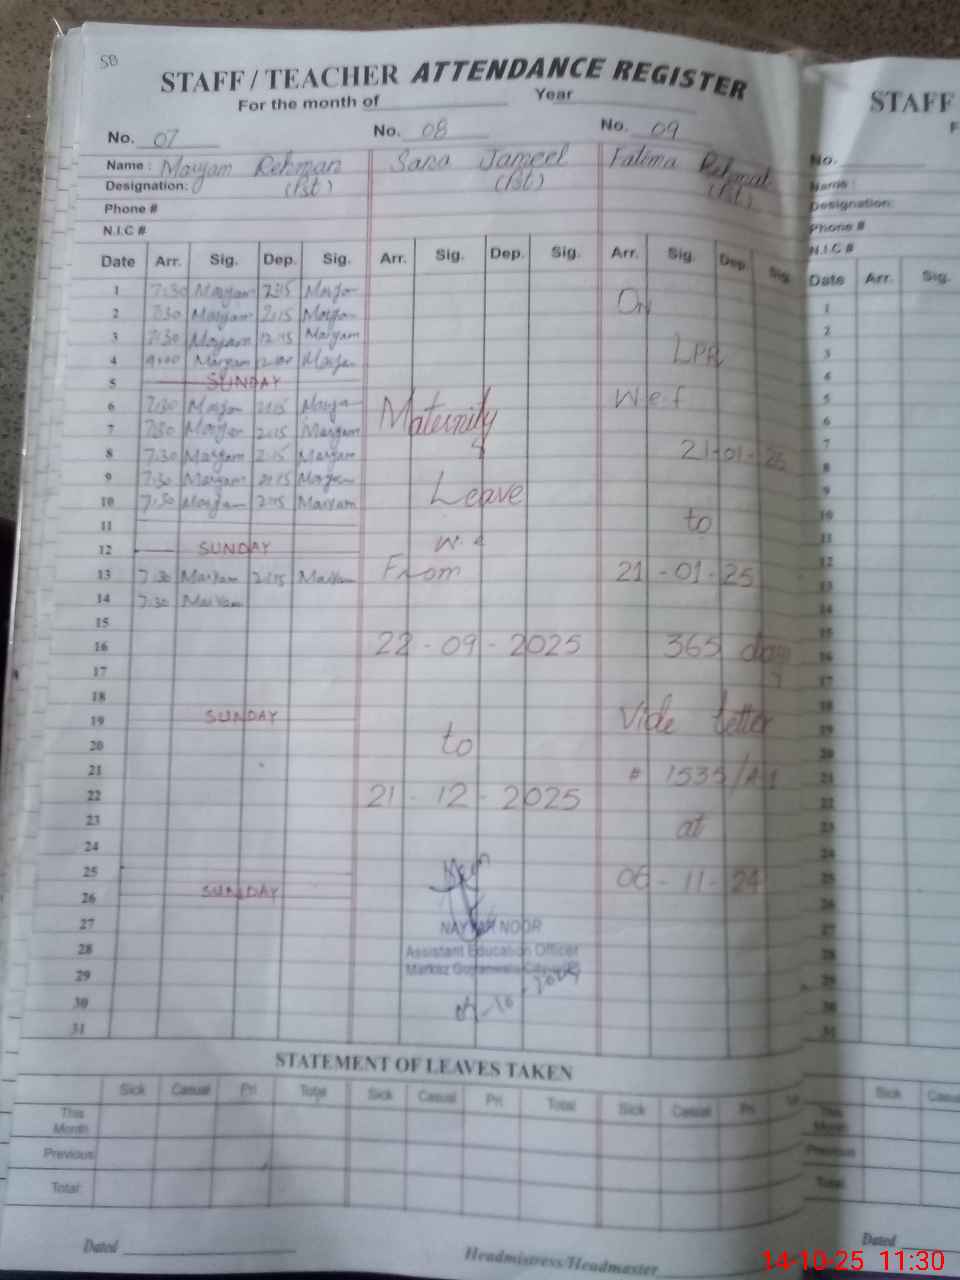 STAFF / TEACHER ATTENDANCE REGISTER
For the month of Year
No. 07 No. 08 No. 09
Name : Maryam Rehman Sana Jameel Fatima Rehmat
Designation: (Pst) (Pst) (Pst)
Phone #
N.I.C #
Date Arr. Sig. Dep. Sig. Arr. Sig. Dep. Sig. Arr. Sig. Dep. Sig.
1 7:30 Maryam 2:15 Maryam
2 7:30 Maryam 2:15 Maryam On
3 7:30 Maryam 12:15 Maryam
4 Maryam Maryam LPR
5 SUNDAY
6 7:30 Maryam 2:15 Maryam Maternity W.e.f
7 7:30 Maryam 2:15 Maryam
8 7:30 Maryam 2:15 Maryam 21-01-25
9 7:30 Maryam 2:15 Maryam
10 7:30 Maryam 2:15 Maryam Leave
11 to
12 SUNDAY
13 7:30 Maryam 2:15 Maryam From 21-01-25
14 7:30 Maryam
15
16 22-09-2025 365 days
17
18
19 SUNDAY Vide letter
20 to
21 # 1535/A1
22 21-12-2025
23 at
24
25 06-11-24
26 SUNDAY
27 NOOR
28 Assistant Education Officer
29 Markaz
30
31
STATEMENT OF LEAVES TAKEN
Sick Casual Pri Total Sick Casual Pri Total Sick Casual Pri
This Month
Previous
Total
Dated Headmistress/Headmaster
STAFF
No.
Name :
Designation:
Phone #
N.I.C #
Date Arr. Sig.
1
2
3
4
5
6
7
8
9
10
11
12
13
14
15
16
17
18
19
20
21
22
23
24
25
26
27
28
29
30
31
Sick
This Month
Previous
Total
Dated
14-10-25 11:30